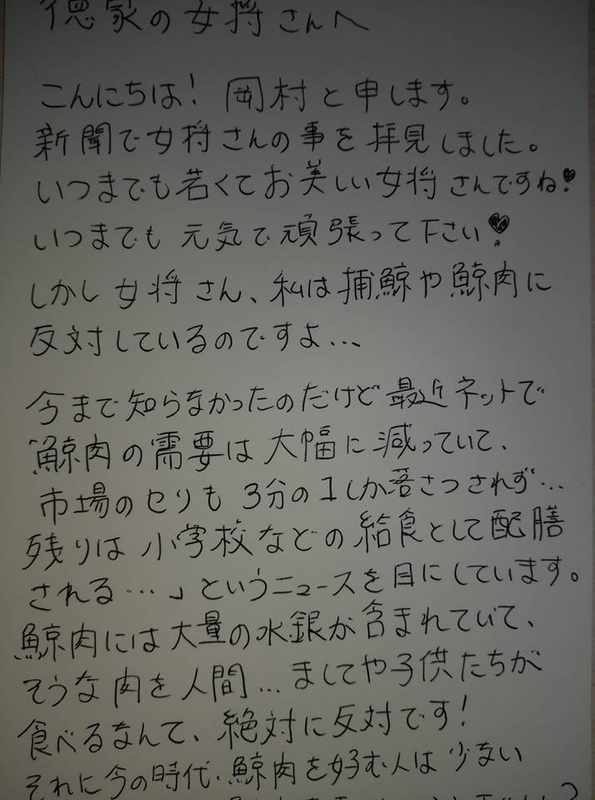 徳家の女将さんへ
こんにちは! 岡村と申します。
新聞で女将さんの事を拝見しました。
いつまでも若くてお美しい女将さんですね!
いつまでも 元気で頑張って下さい!
しかし女将さん、私は捕鯨や鯨肉に
反対しているのですよ...
今まで知らなかったのだけど最近ネットで
「鯨肉の需要は大幅に減っていて、
市場のセリも 3分の1しか落さつされず…
残りは 小学校などの給食として配膳
される…」というニュースを目にしています。
鯨肉には大量の水銀が含まれていて、
そうな肉を人間...ましてや子供たちが
食べるなんて、絶対に反対です!
それに今の時代、鯨肉を好む人は少ない